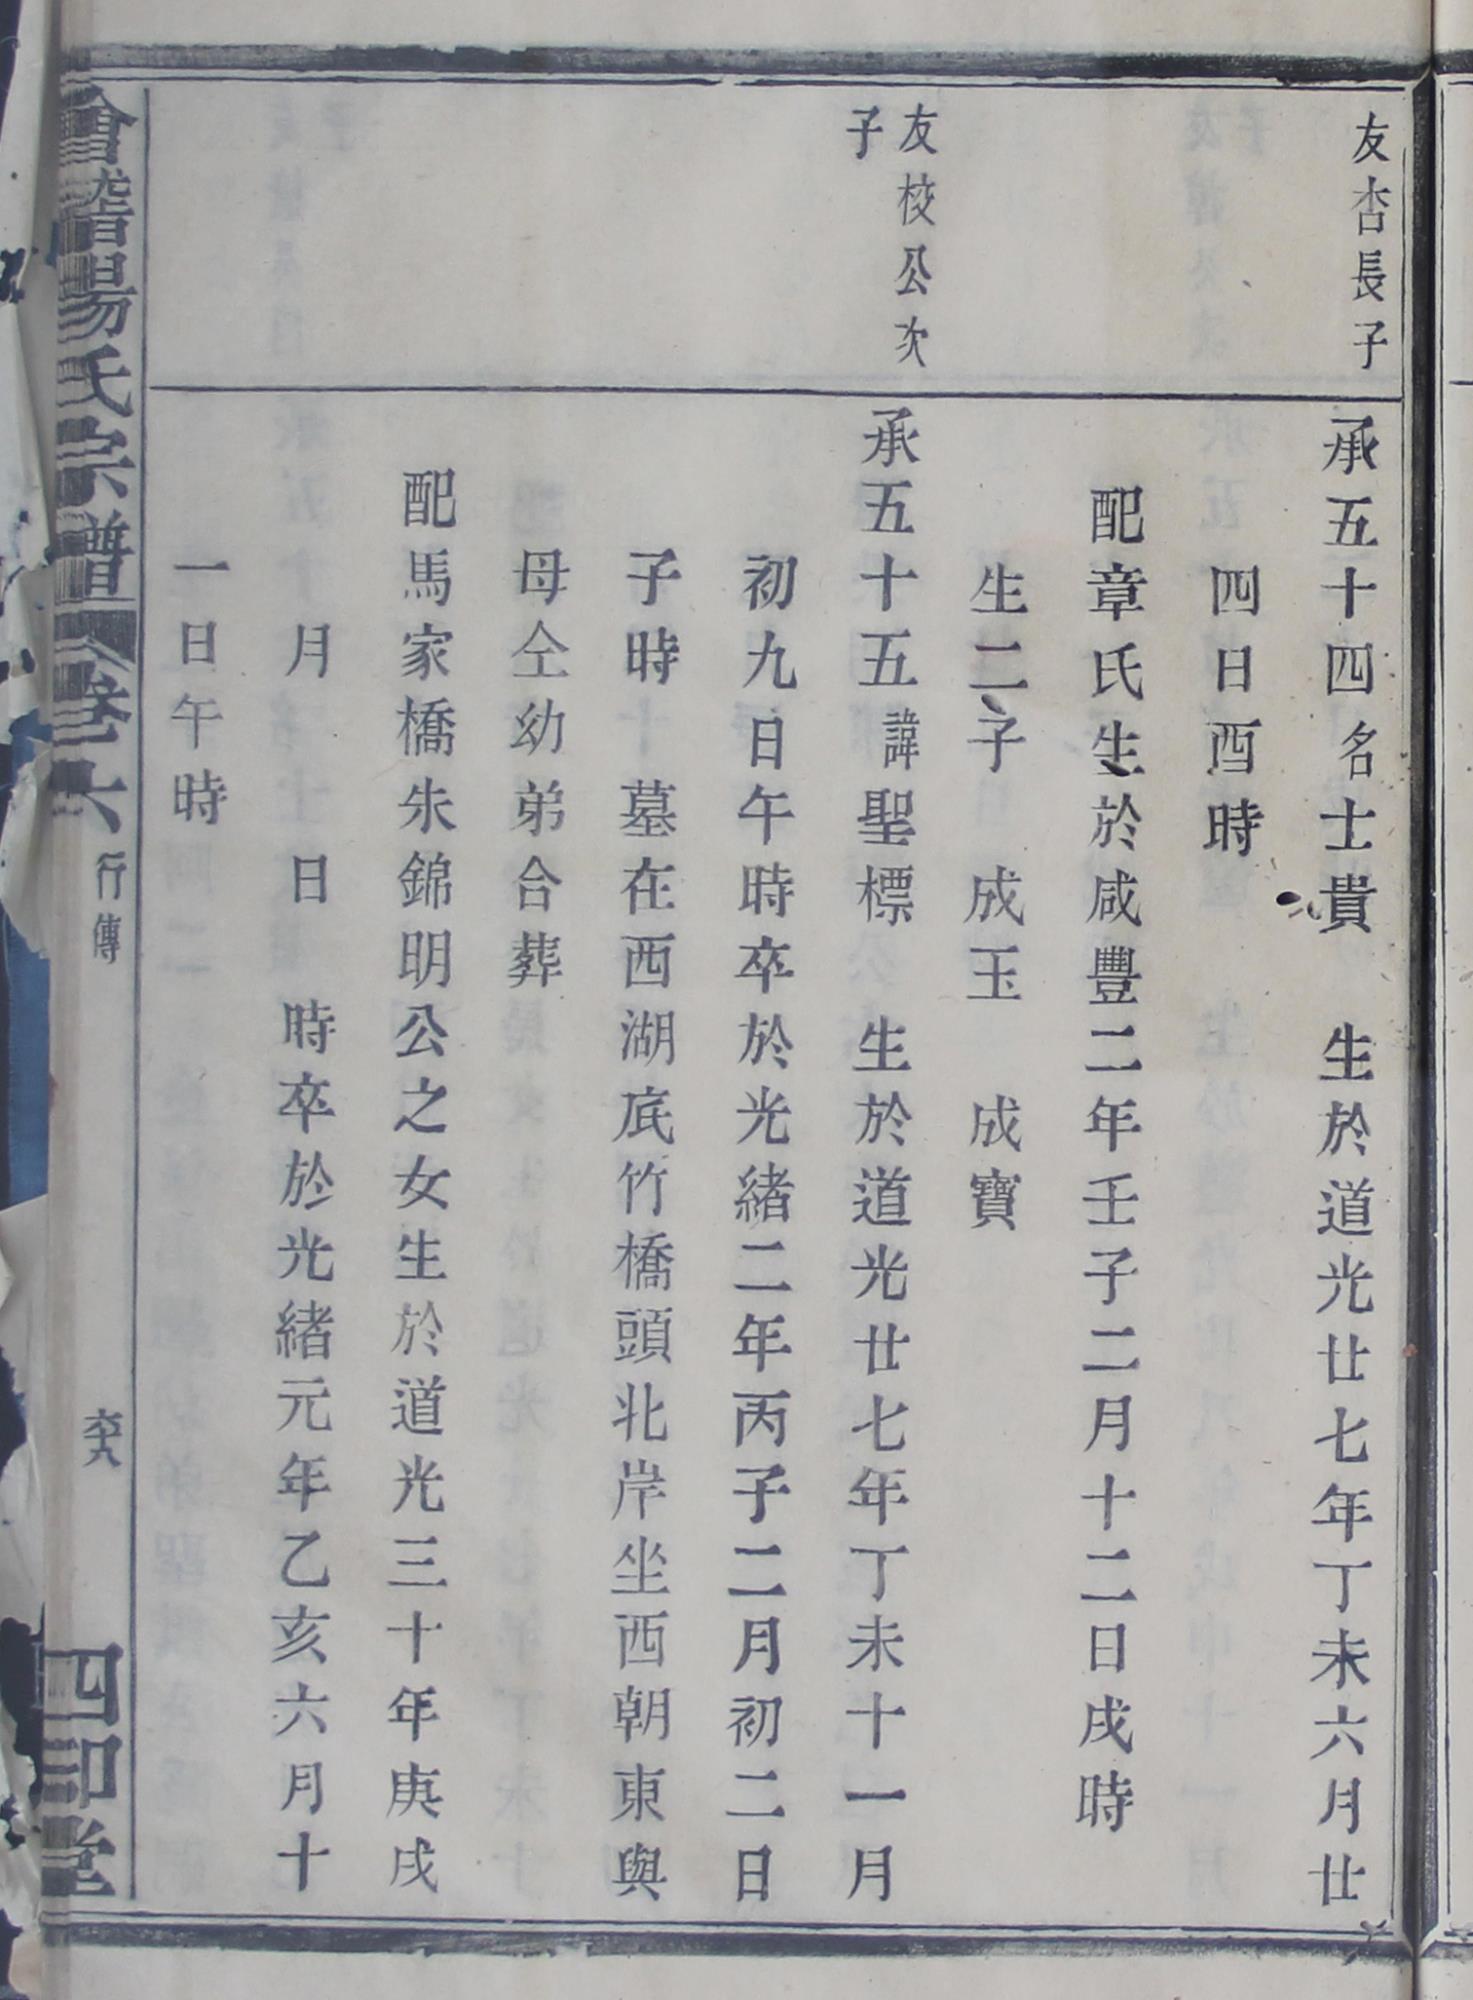 友杏長子
承五十四名士貴　生於道光廿七年丁未六月廿
四日酉時
配章氏生於咸豐二年壬子二月十二日戌時
生二子　成玉　成寶
友校公次
子
承五十五諱聖標　生於道光廿七年丁未十一月
初九日午時卒於光緒二年丙子二月初二日
子時　墓在西湖底竹橋頭北岸坐西朝東與
母仝幼弟合葬
配馬家橋朱錦明公之女生於道光三十年庚戌
月　　日　時卒於光緒元年乙亥六月十
一日午時
會稽楊氏宗譜　卷六　行傳　六十八　四印堂